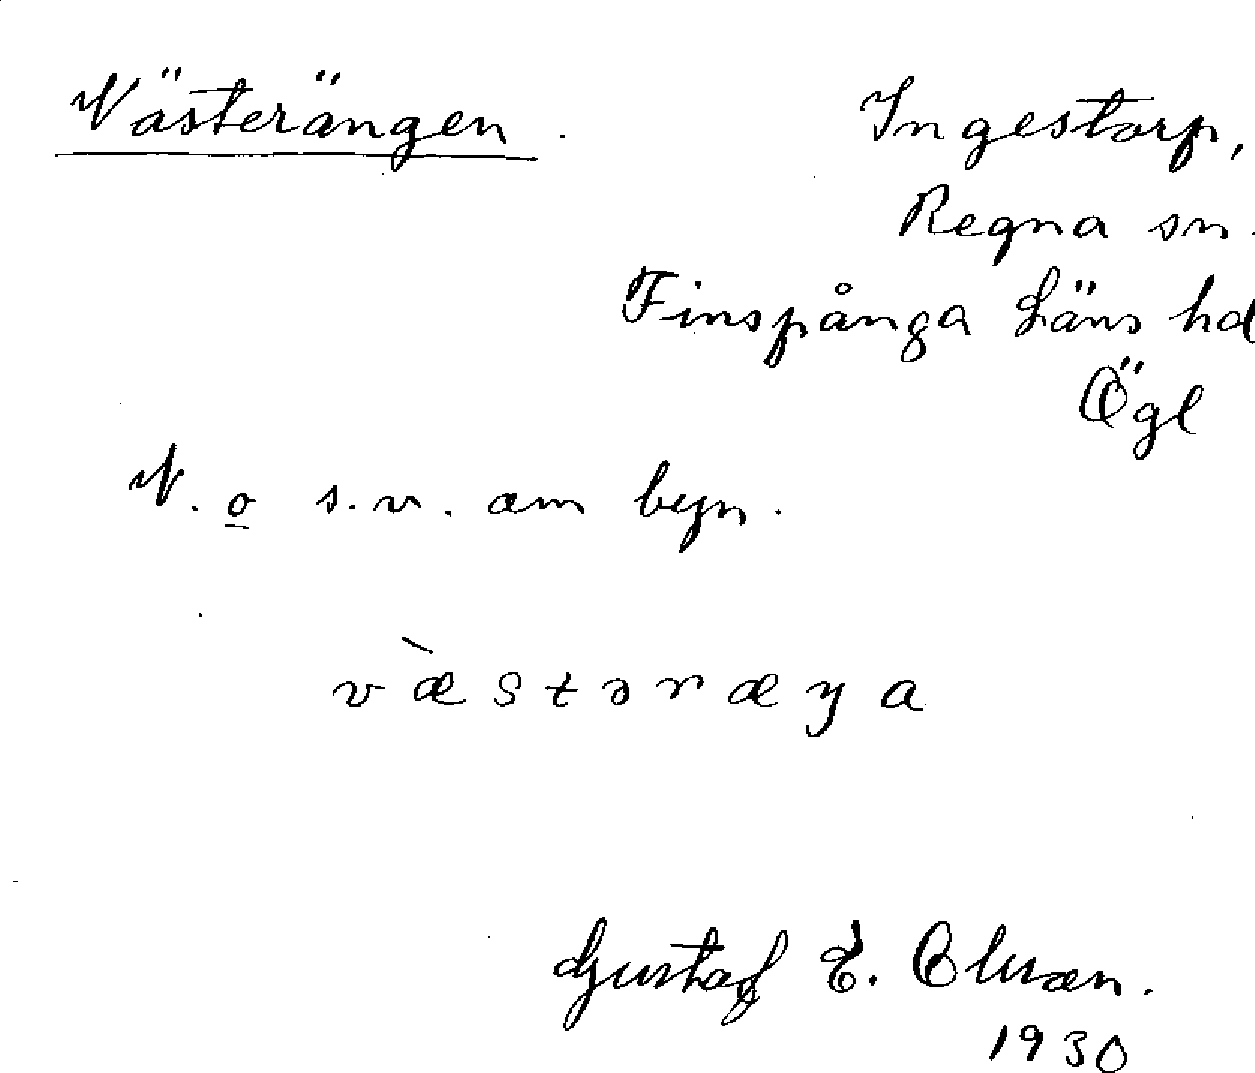 Västerängen.
Ingestorp,
Regna sn.
Finspånga Läns hd
Ögl
V. o s.v. om byn.
væ̀stəræŋa
Gustaf E. Olson.
1930